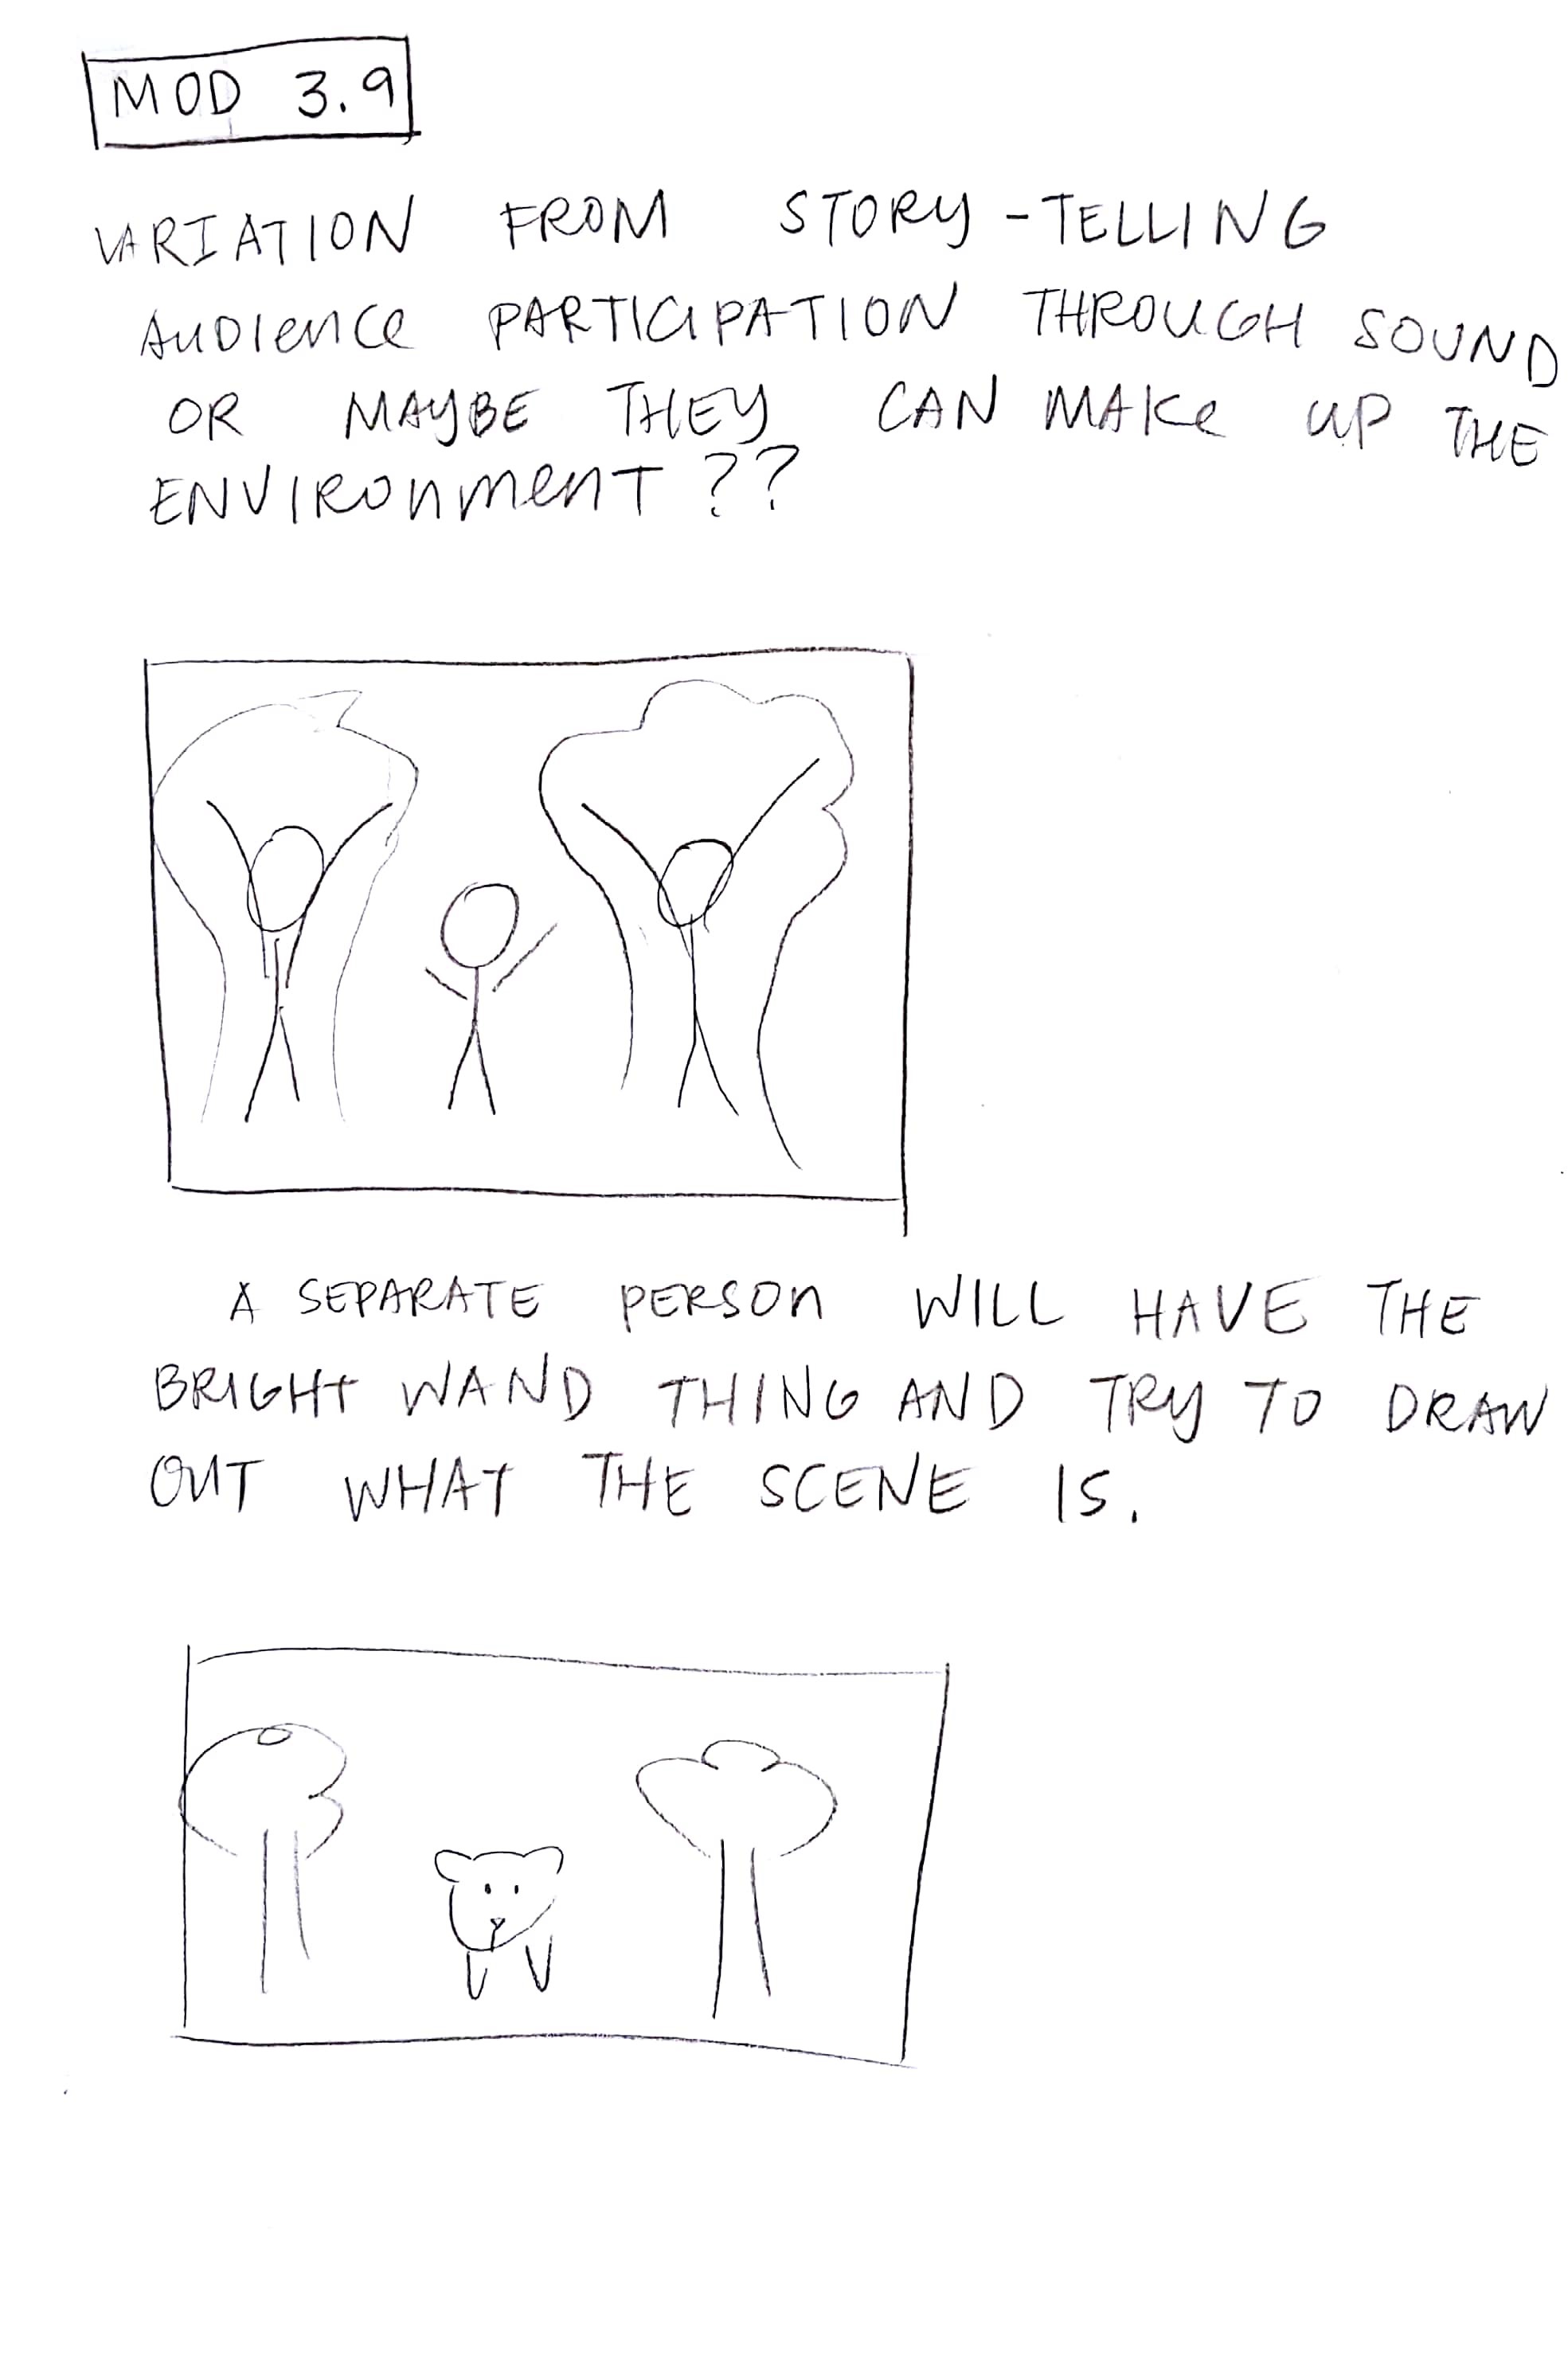 MOD 3.9
VARIATION FROM STORY-TELLING
AUDIENCE PARTICIPATION THROUGH SOUND
OR MAYBE THEY CAN MAKE UP THE
ENVIRONMENT??
A SEPARATE PERSON WILL HAVE THE
BRIGHT WAND THING AND TRY TO DRAW
OUT WHAT THE SCENE IS.